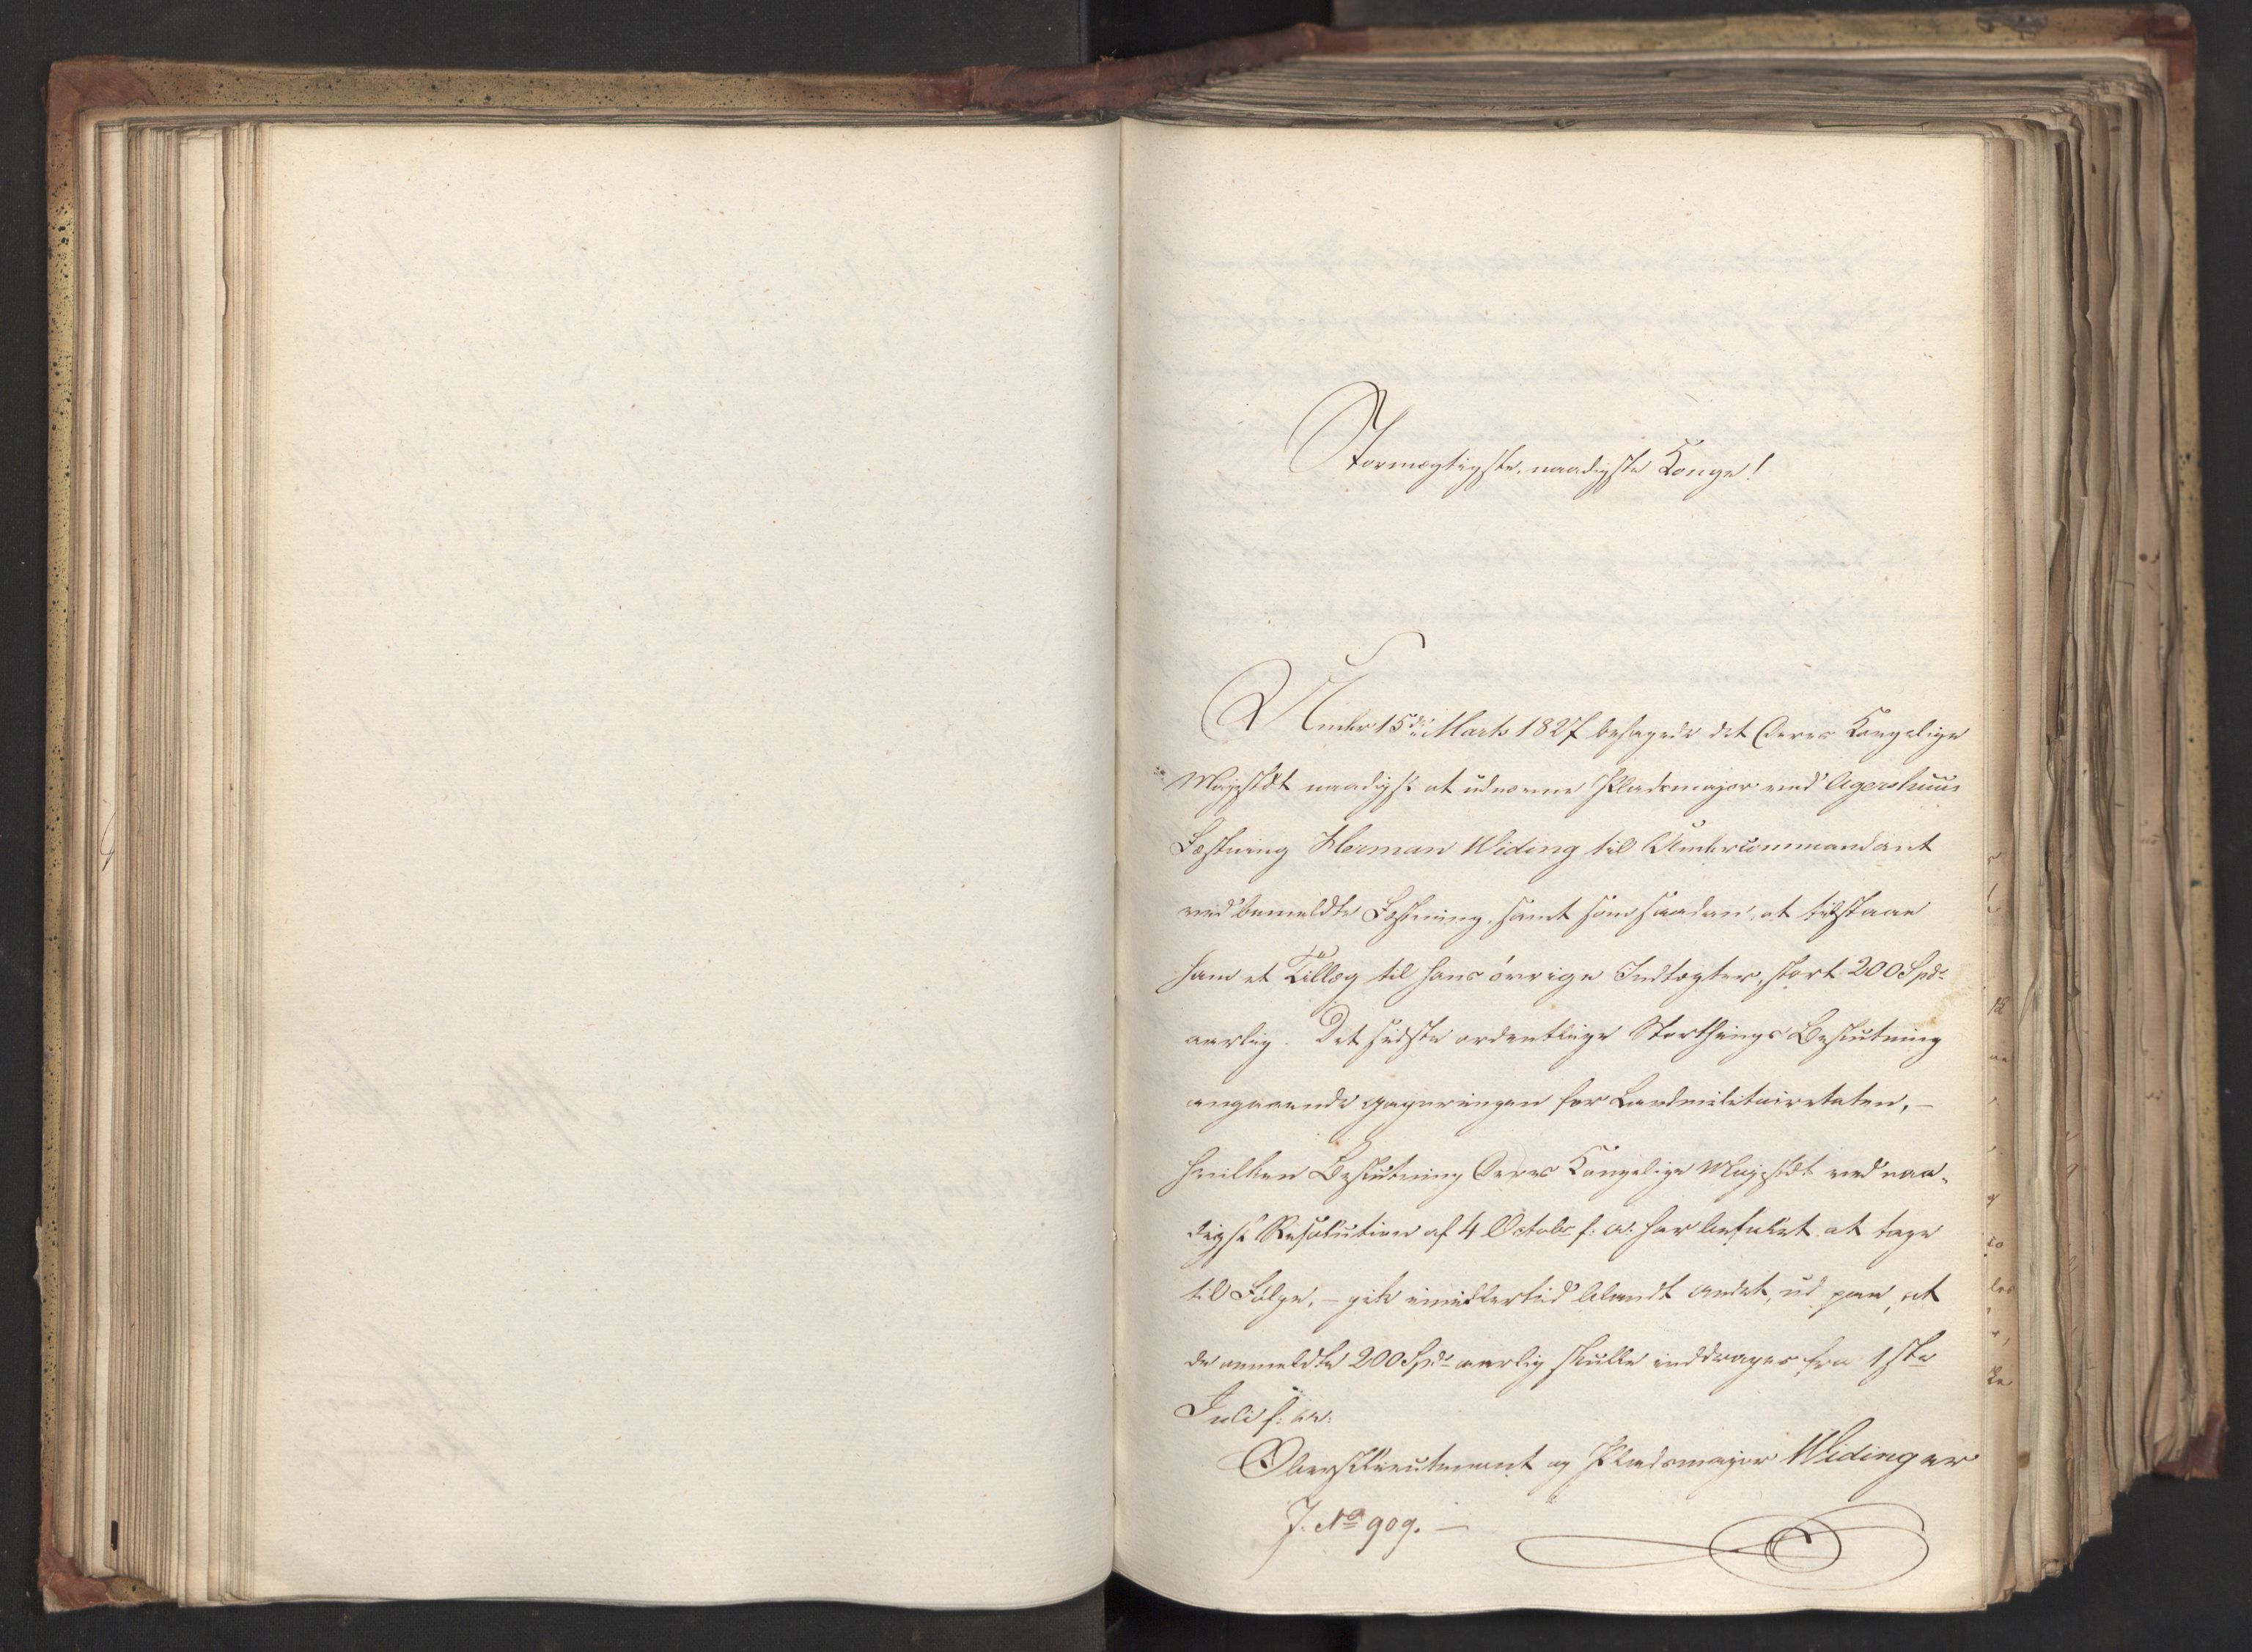 Stormægtigste, naadigste Konge!
Under 15de Marts 1827 behagede det Deres Kongelige
Majestæt naadigst at udnævne Pladsmajor ved Agershuus
Fæstning Herman Widing til Undercommandant
ved bemeldte Fæstning, samt som saadan, at tilstaae
ham et Tillæg til hans övrige Indtægter, stort 200 Spd.
aarlig. Det sidste ordentlige Storthings Beslutning
angaaende Gageringen for Landmilitairetaten, –
hvilken Beslutning Deres Kongelige Majestæt ved naa-
digst Resolution af 4 Octobr f: A: har befalet at tage
til Fölge, – gik imidlertid blandt andet, ud paa, at
de anmeldte 200 Spd. aarlig skulle inddrages fra 1ste
Juli f: A:
Oberstlieutenant og Pladsmajor Widing er
J. No 909. –